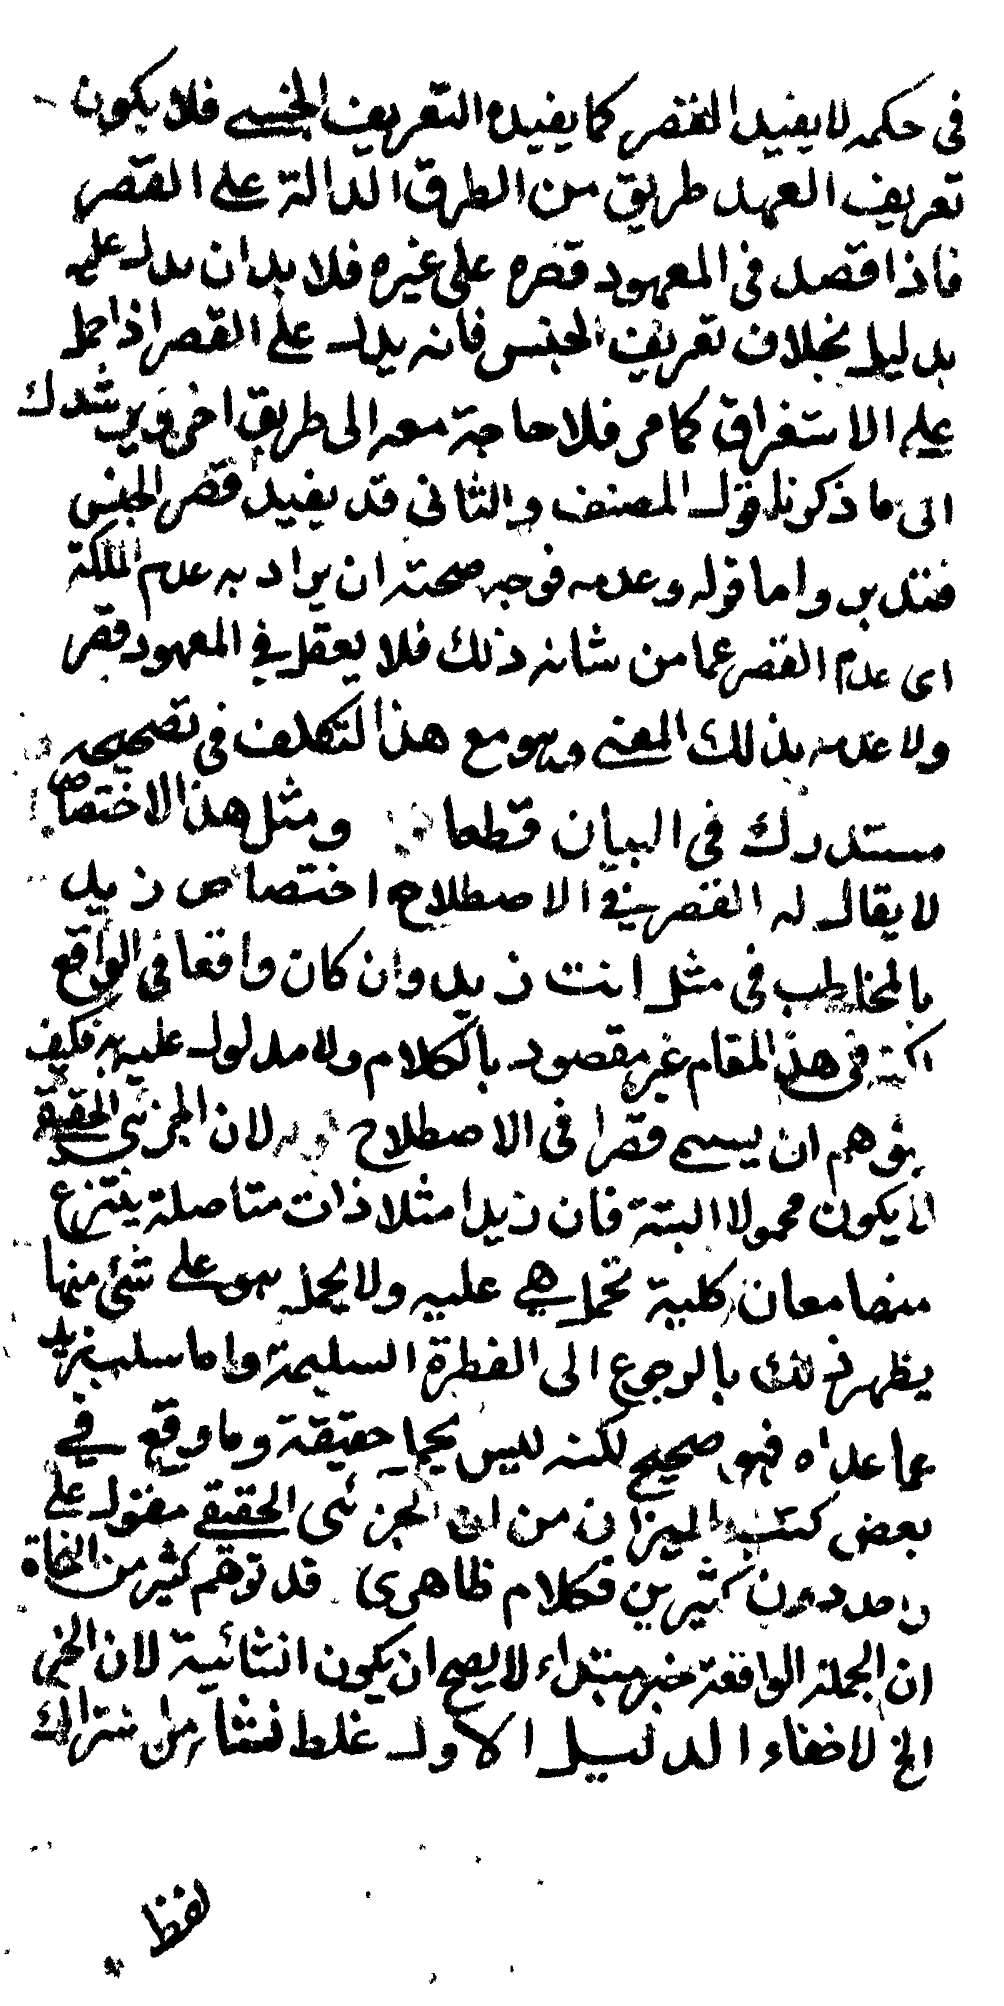 في حكمه لا يفيد القصر كما يفيده التعريف الجنسي فلا يكون
تعريف العهد طريق من الطرق الدالة على القصر
فاذا قصد في المعهود قصره على غيره فلا بد ان يدل عليه
بدليل بخلاف تعريف الجنس فانه يدل على القصر اذا حمل
على الاستغراق كما مر فلا حاجة معه الى طريق اخر ويرشدك
الى ما ذكرنا قول المصنف والثاني قد يفيد قصر الجنس
فتدبر واما قوله وعدمه فوجه صحته ان يراد به عدم الملكة
اى عدم القصر عما من شانه ذلك فلا يعقل في المعهود قصر
ولا عدمه بذلك المعنى وهو مع هذا التكلف في تصحيحه
مستدرك في البيان قطعا ومثل هذا الاختصاص
لا يقال له القصر في الاصطلاح اختصاص زيد
بالمخاطب في مثل انت زيد وان كان واقعا في الواقع
لكنه في هذا المقام غير مقصود بالكلام ولا مدلول عليه به فكيف
يتوهم ان يسمى قصرا في الاصطلاح لان الجزئي الحقيقي
لا يكون محمولا البتة فان زيدا مثلا ذات متاصلة ينتزع
منها معان كلية تحمل هي عليه ولا يحمل هو على شئ منها
يظهر ذلك بالرجوع الى الفطرة السليمة واما سلب زيد
عما عداه فهو صحيح لكنه ليس بحمل حقيقة وما وقع في
بعض كتب الميزان من ان الجزئي الحقيقي مقول على
واحد دون كثيرين فكلام ظاهرى قد توهم كثير من النحاة
ان الجملة الواقعة خبر مبتداء لا يصح ان يكون انشائية لان الخبر
الخ لا خفاء ان الدليل الاول غلط نشأ من اشتراك
لفظ